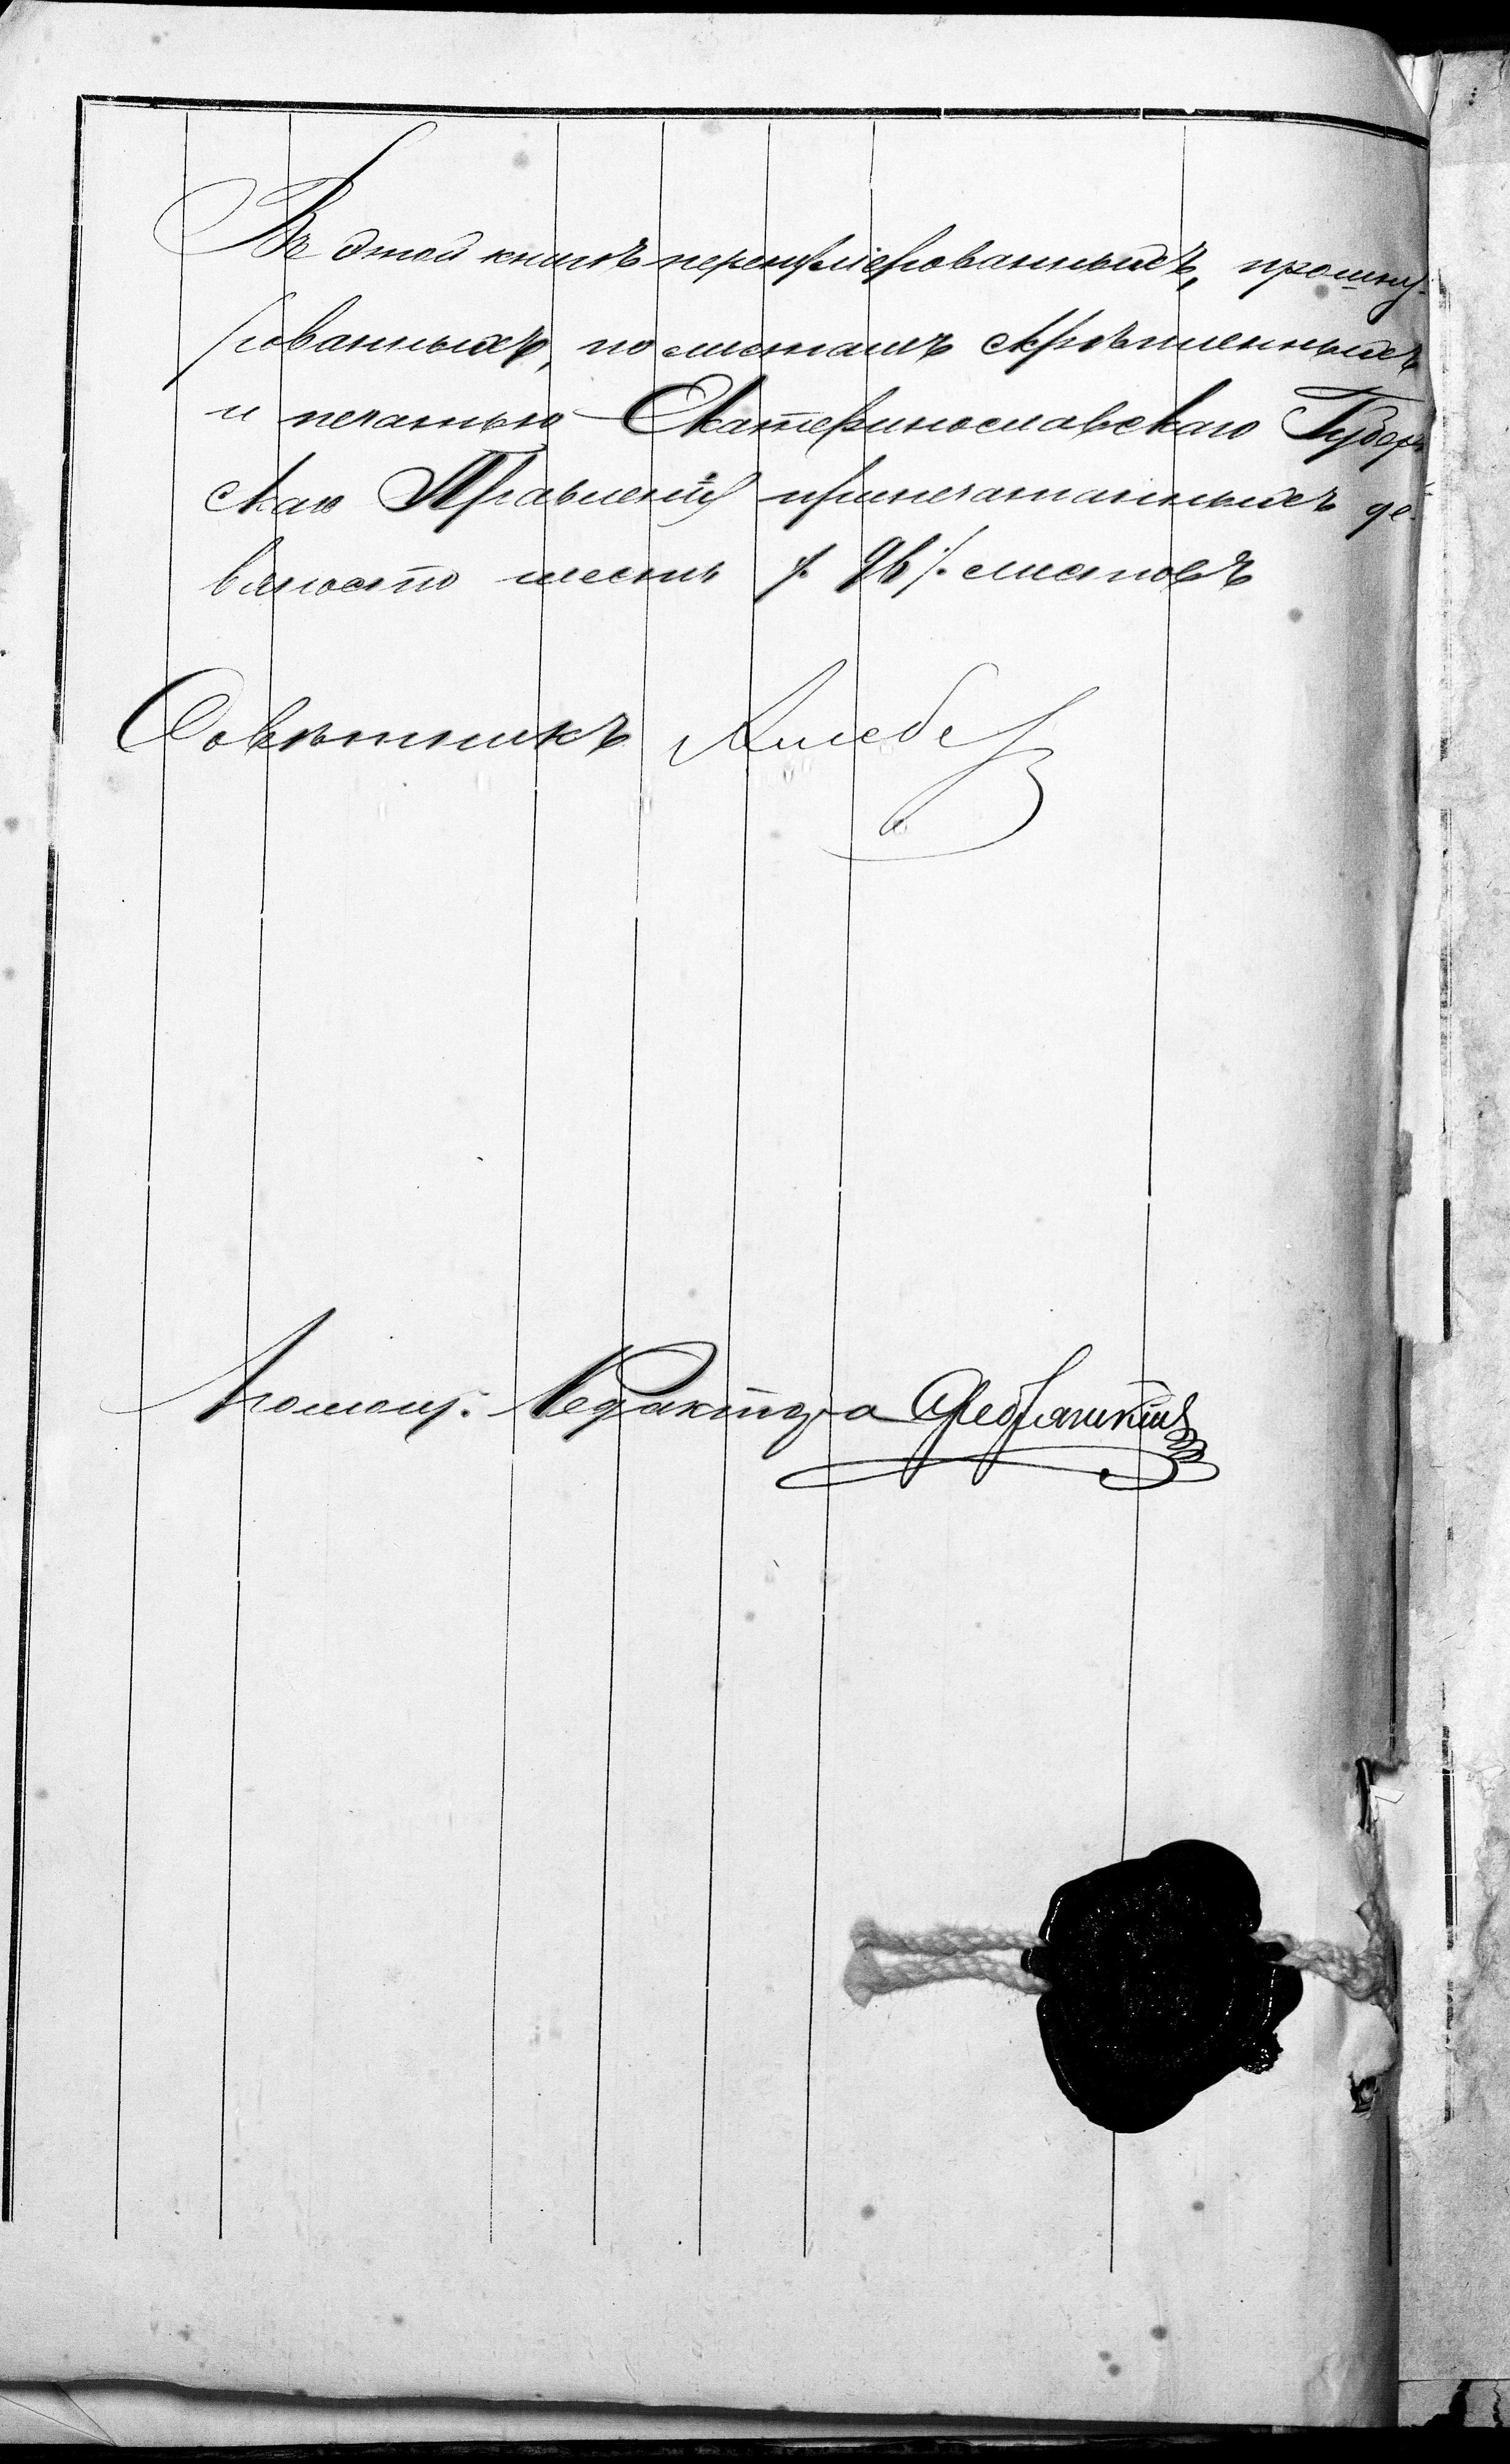 Въ этой книгѣ перенумерованныхъ, прошну-
рованныхъ, по листамъ скрѣпленныхъ
и печатью Екатеринославскаго Губерн
скаго Правленія припечатанныхъ де-
вяносто шесть /. 96 /. листовъ
Совѣтникъ
Помощ. Редактора